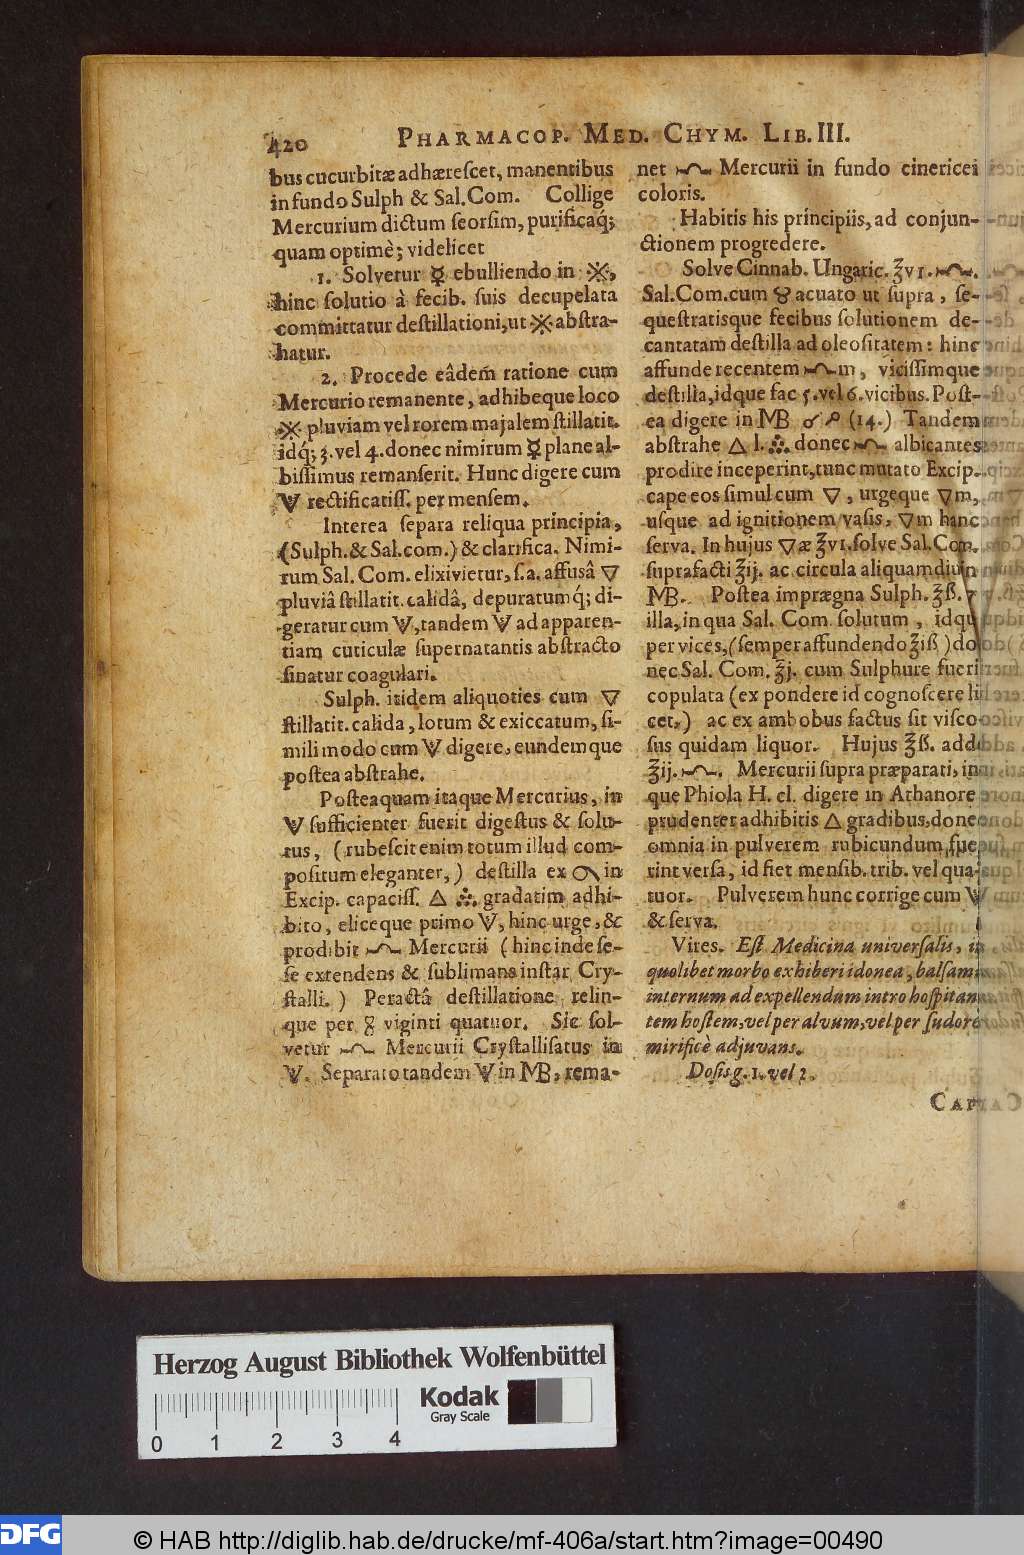 420 PHARMACOP. MED. CHYM. LIB. III.
bus cucurbitæ adhærescet, manentibus
in fundo Sulph & Sal. Com. Collige
Mercurium dictum seorsim, purificaq́;
quam optimè; videlicet
1. Solvetur ☿ ebulliendo in ※,
hinc solutio à fecib. suis decupelata
committatur destillationi, ut ※ abstra-
hatur.
2. Procede eâdem̃ ratione cum
Mercurio remanente, adhibeque loco
※ pluviam vel rorem majalem stillatit.
idq́; 3. vel 4. donec nimirum ☿ plane al-
bissimus remanserit. Hunc digere cum
🜈 rectificatiss. per mensem.
Interea separa reliqua principia,
(Sulph. & Sal. com.) & clarifica. Nimi-
rum Sal. Com. elixivietur, s. a. affusâ ▽
pluviâ stillatit. calidâ, depuratumq́; di-
geratur cum 🜈, tandem 🜈 ad apparen-
tiam cuticulæ supernatantis abstracto
sinatur coagulari.
Sulph. itidem aliquoties cum ▽
stillatit. calida, lotum & exiccatum, si-
mili modo cum 🜈 digere, eundemque
postea abstrahe.
Posteaquam itaque Mercurius, in
🜈 sufficienter fuerit digestus & solu-
tus, (rubescit enim totum illud com-
positum eleganter,) destilla ex in
Excip. capaciss. △ gradatim adhi-
bito, eliceque primo 🜈, hinc urge, &
prodibit Mercurii (hinc inde se-
se extendens & sublimans instar Cry-
stalli.) Peractâ destillatione relin-
que per viginti quatuor. Sic sol-
vetur Mercurii Crystallisatus in
🜈. Separato tandem 🜈 in MB, rema-
net Mercurii in fundo cinericei
coloris.
Habitis his principiis, ad conjun-
ctionem progredere.
Solve Cinnab. Ungaric. ℥vi.
Sal. Com. cum acuato ut supra, se-
questratisque fecibus solutionem de-
cantatam destilla ad oleositatem: hinc
affunde recentem m, vicissimque
destilla, idque fac 5. vel 6. vicibus. Post-
ea digere in MB ☌ ☍ (14.) Tandem
abstrahe △ l. donec albicantes
prodire inceperint, tunc mutato Excip.
cape eos simul cum ▽, urgeque ▽m,
usque ad ignitionem vasis, ▽m hanc
serva. In hujus ▽æ ℥vi. solve Sal. Com.
suprafacti ℥ij. ac circula aliquamdiu in
MB. Postea imprægna Sulph. ℥ß.
illa, in qua Sal. Com. solutum, idqu
per vices, (semper affundendo ℥iß) do
nec Sal. Com. ℥j. cum Sulphure fueri
copulata (ex pondere id cognoscere li
cet.) ac ex ambobus factus sit visco
sus quidam liquor. Hujus ℥ß. add
℥ij. Mercurii supra præparati, in
que Phiola H. cl. digere in Athanore
prudenter adhibitis △ gradibus, donec
omnia in pulverem rubicundum fue
rint versa, id fiet mensib. trib. vel qua-
tuor. Pulverem hunc corrige cum 🜈
& serva.
Vires. Est Medicina universalis, in
quolibet morbo exhiberi idonea, balsam
internum ad expellendum intro hospitan
tem hostem, vel per alvum, vel per sudore
mirificè adjuvans.
Dosis g. 1. vel 2.
Herzog August Bibliothek Wolfenbüttel
Kodak
Gray Scale
0 1 2 3 4
DFG
© HAB http://diglib.hab.de/drucke/mf-406a/start.htm?image=00490